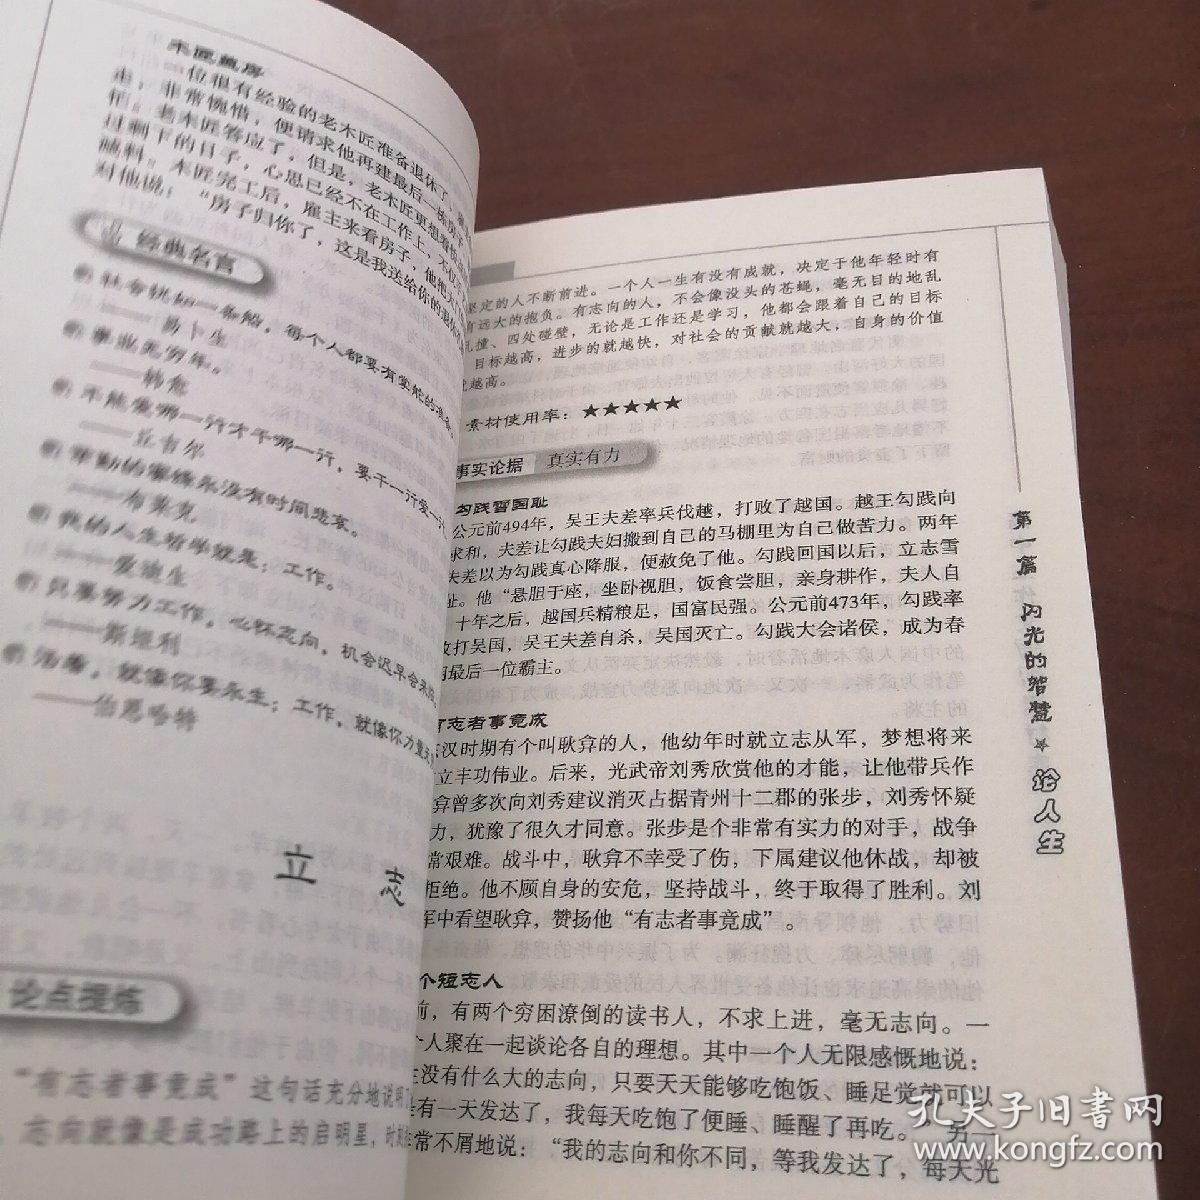 木匠盖房
一位很有经验的老木匠准备退休了，雇
走，非常惋惜，便请求他再建最后一栋房子
信。老木匠答应了，但是，老木匠更想
过剩下的日子，心思已经不在工作上，不仅
辅料。木匠完工后，雇主来看房子，他把大
对他说：“房子归你了，这是我送给你的退休
经典名言
社会犹如一条船，每个人都要有掌舵的准备。
——易卜生
事业无穷年。
——韩愈
不能爱哪一行才干哪一行，要干一行爱一行
——丘吉尔
辛勤的蜜蜂永没有时间悲哀。
——布莱克
我的人生哲学就是：工作。
——爱迪生
只要努力工作，心怀志向，机会迟早会来的
——斯坦利
活着，就像你要永生；工作，就像你力量无
——伯恩哈特
立 志
论点提炼
“有志者事竟成”这句话充分地说明了
志向就像是成功路上的启明星，时刻
坚定的人不断前进。一个人一生有没有成就，决定于他年轻时有
有远大的抱负。有志向的人，不会像没头的苍蝇，毫无目的地乱
乱撞、四处碰壁，无论是工作还是学习，他都会跟着自己的目标
目标越高，进步的就越快，对社会的贡献就越大，自身的价值
就越高。
素材使用率：★★★★★
事实论据 真实有力
勾践雪国耻
公元前494年，吴王夫差率兵伐越，打败了越国。越王勾践向
求和，夫差让勾践夫妇搬到自己的马棚里为自己做苦力。两年
夫差以为勾践真心降服，便赦免了他。勾践回国以后，立志雪
耻。他“悬胆于座，坐卧视胆，饭食尝胆，亲身耕作，夫人自
十年之后，越国兵精粮足，国富民强。公元前473年，勾践率
攻打吴国，吴王夫差自杀，吴国灭亡。勾践大会诸侯，成为春
最后一位霸主。
有志者事竟成
东汉时期有个叫耿弇的人，他幼年时就立志从军，梦想将来
立丰功伟业。后来，光武帝刘秀欣赏他的才能，让他带兵作
弇曾多次向刘秀建议消灭占据青州十二郡的张步，刘秀怀疑
力，犹豫了很久才同意。张步是个非常有实力的对手，战争
常艰难。战斗中，耿弇不幸受了伤，下属建议他休战，却被
拒绝。他不顾自身的安危，坚持战斗，终于取得了胜利。刘
军中看望耿弇，赞扬他“有志者事竟成”。
个短志人
前，有两个穷困潦倒的读书人，不求上进，毫无志向。一
个人聚在一起谈论各自的理想。其中一个人无限感慨地说：
没有什么大的志向，只要天天能够吃饱饭、睡足觉就可以
有一天发达了，我每天吃饱了便睡、睡醒了再吃。”另一
常不屑地说：“我的志向和你不同，等我发达了，每天光
第一篇 闪光的智慧★论人生
孔夫子旧书网
www.kongfz.com